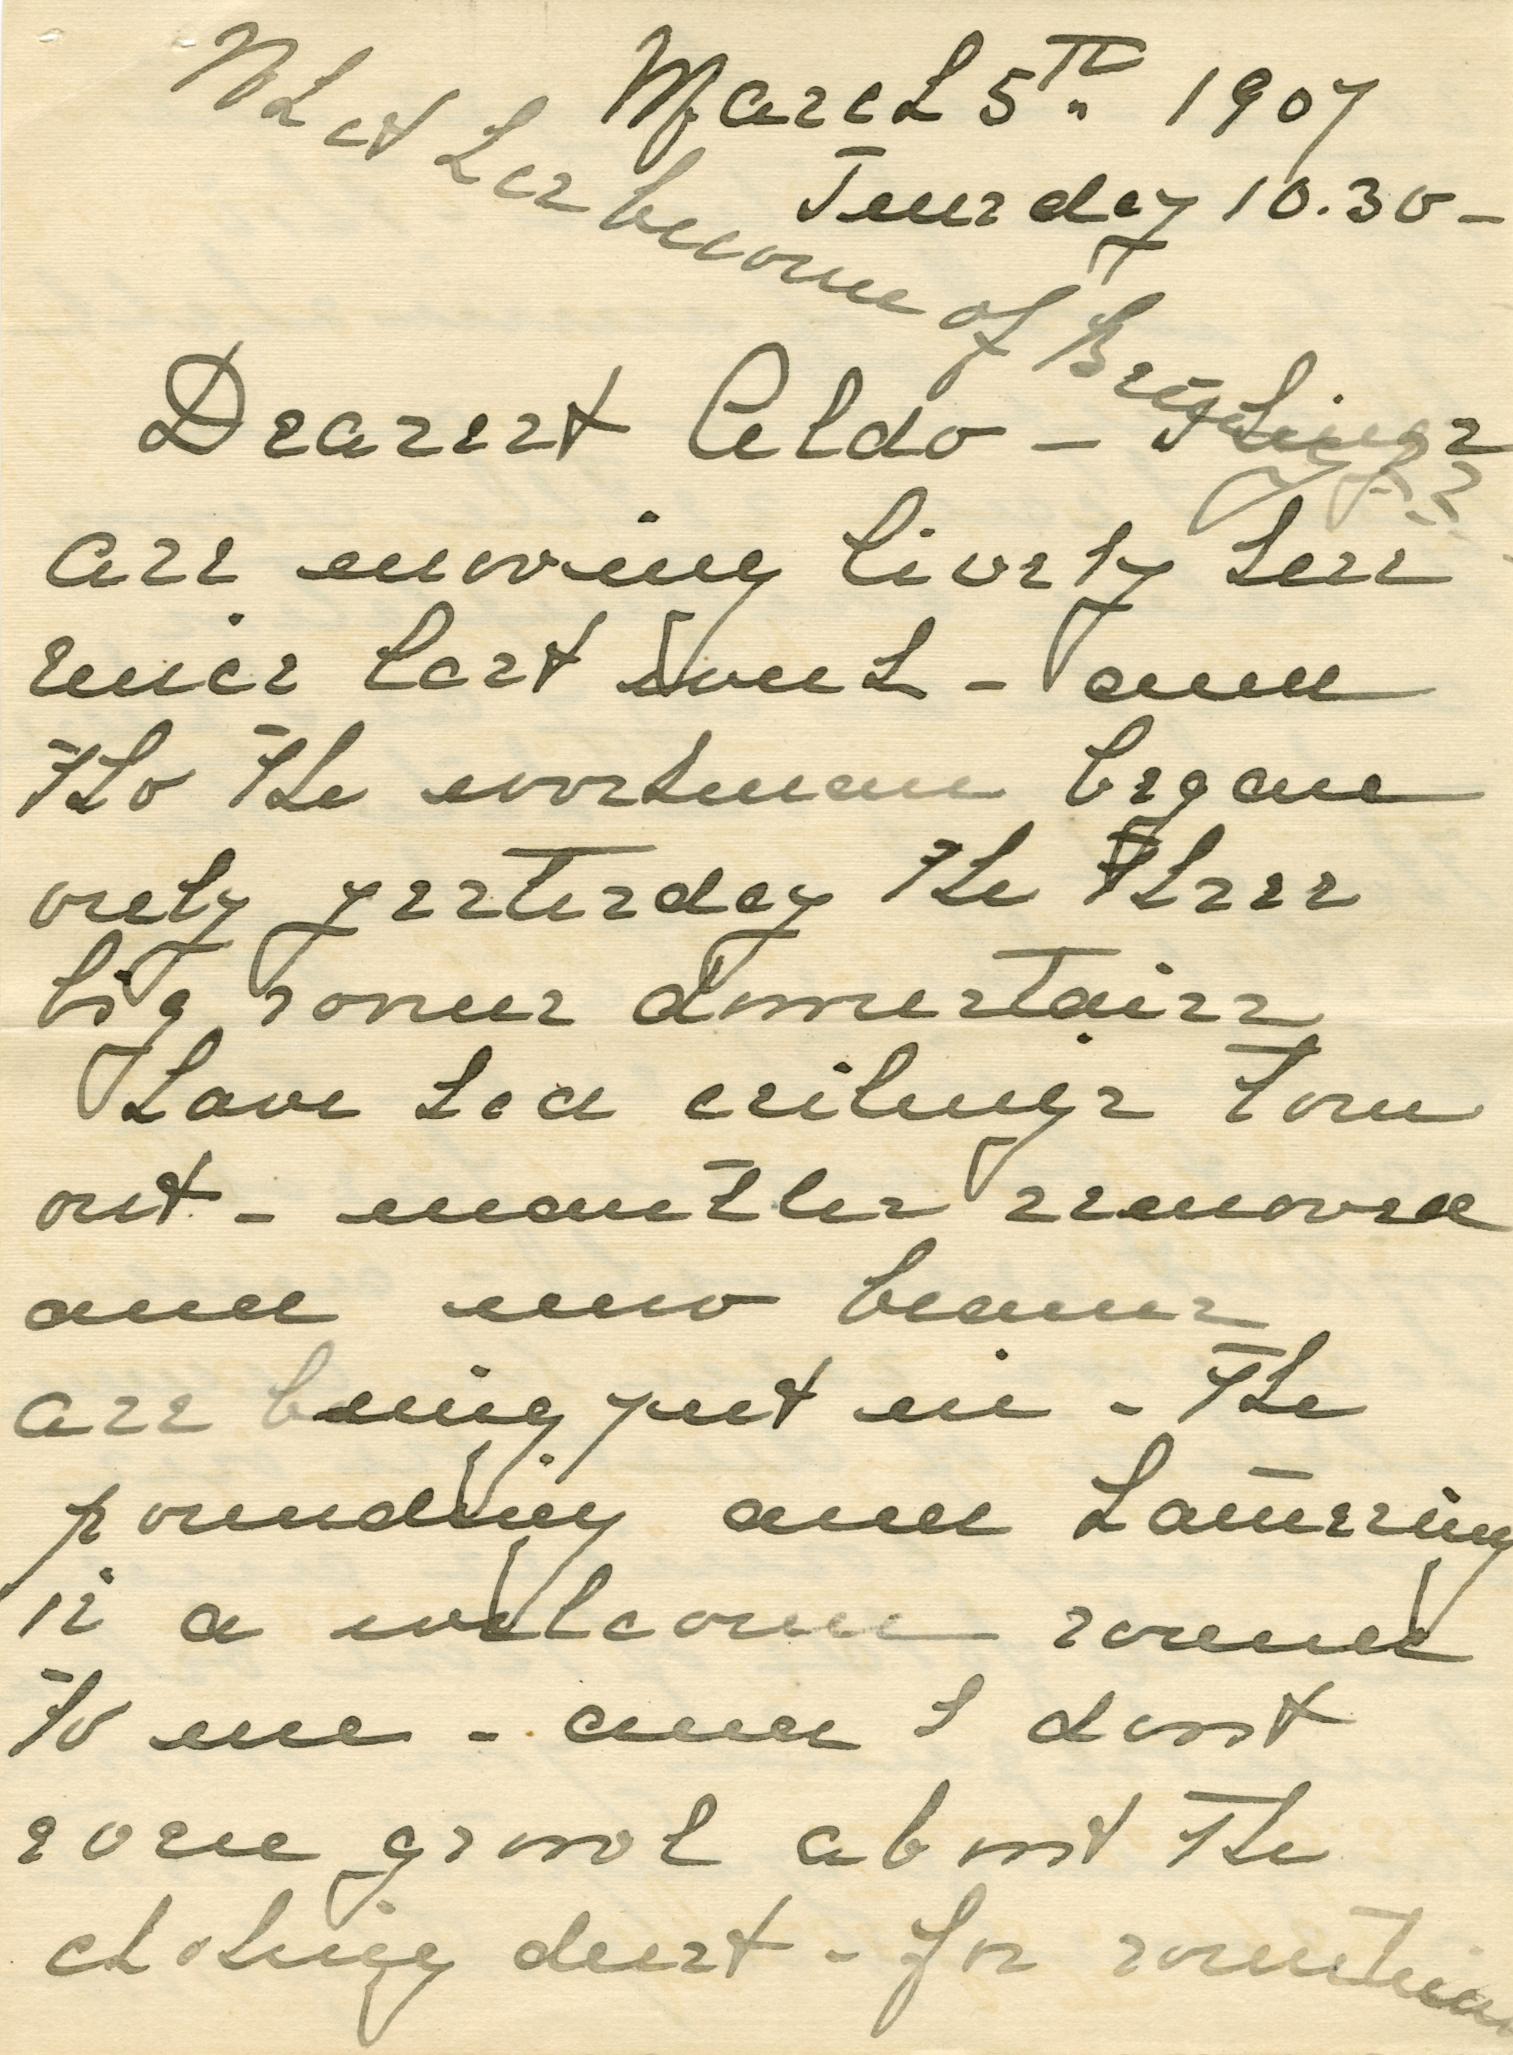 What has become of Brightings??
March 5th 1907
Tuesday 10.30 -
Dearest Aldo - Things
are moving lively here
since last I
and
tho the workman began
only yesterday the three
big rooms downstairs
have had ceilings torn
out - mantles removed
and new beams
are being put in - The
pounding and hammering
is a welcome sound
to me - and I dont
even growl about the
choking dust - for